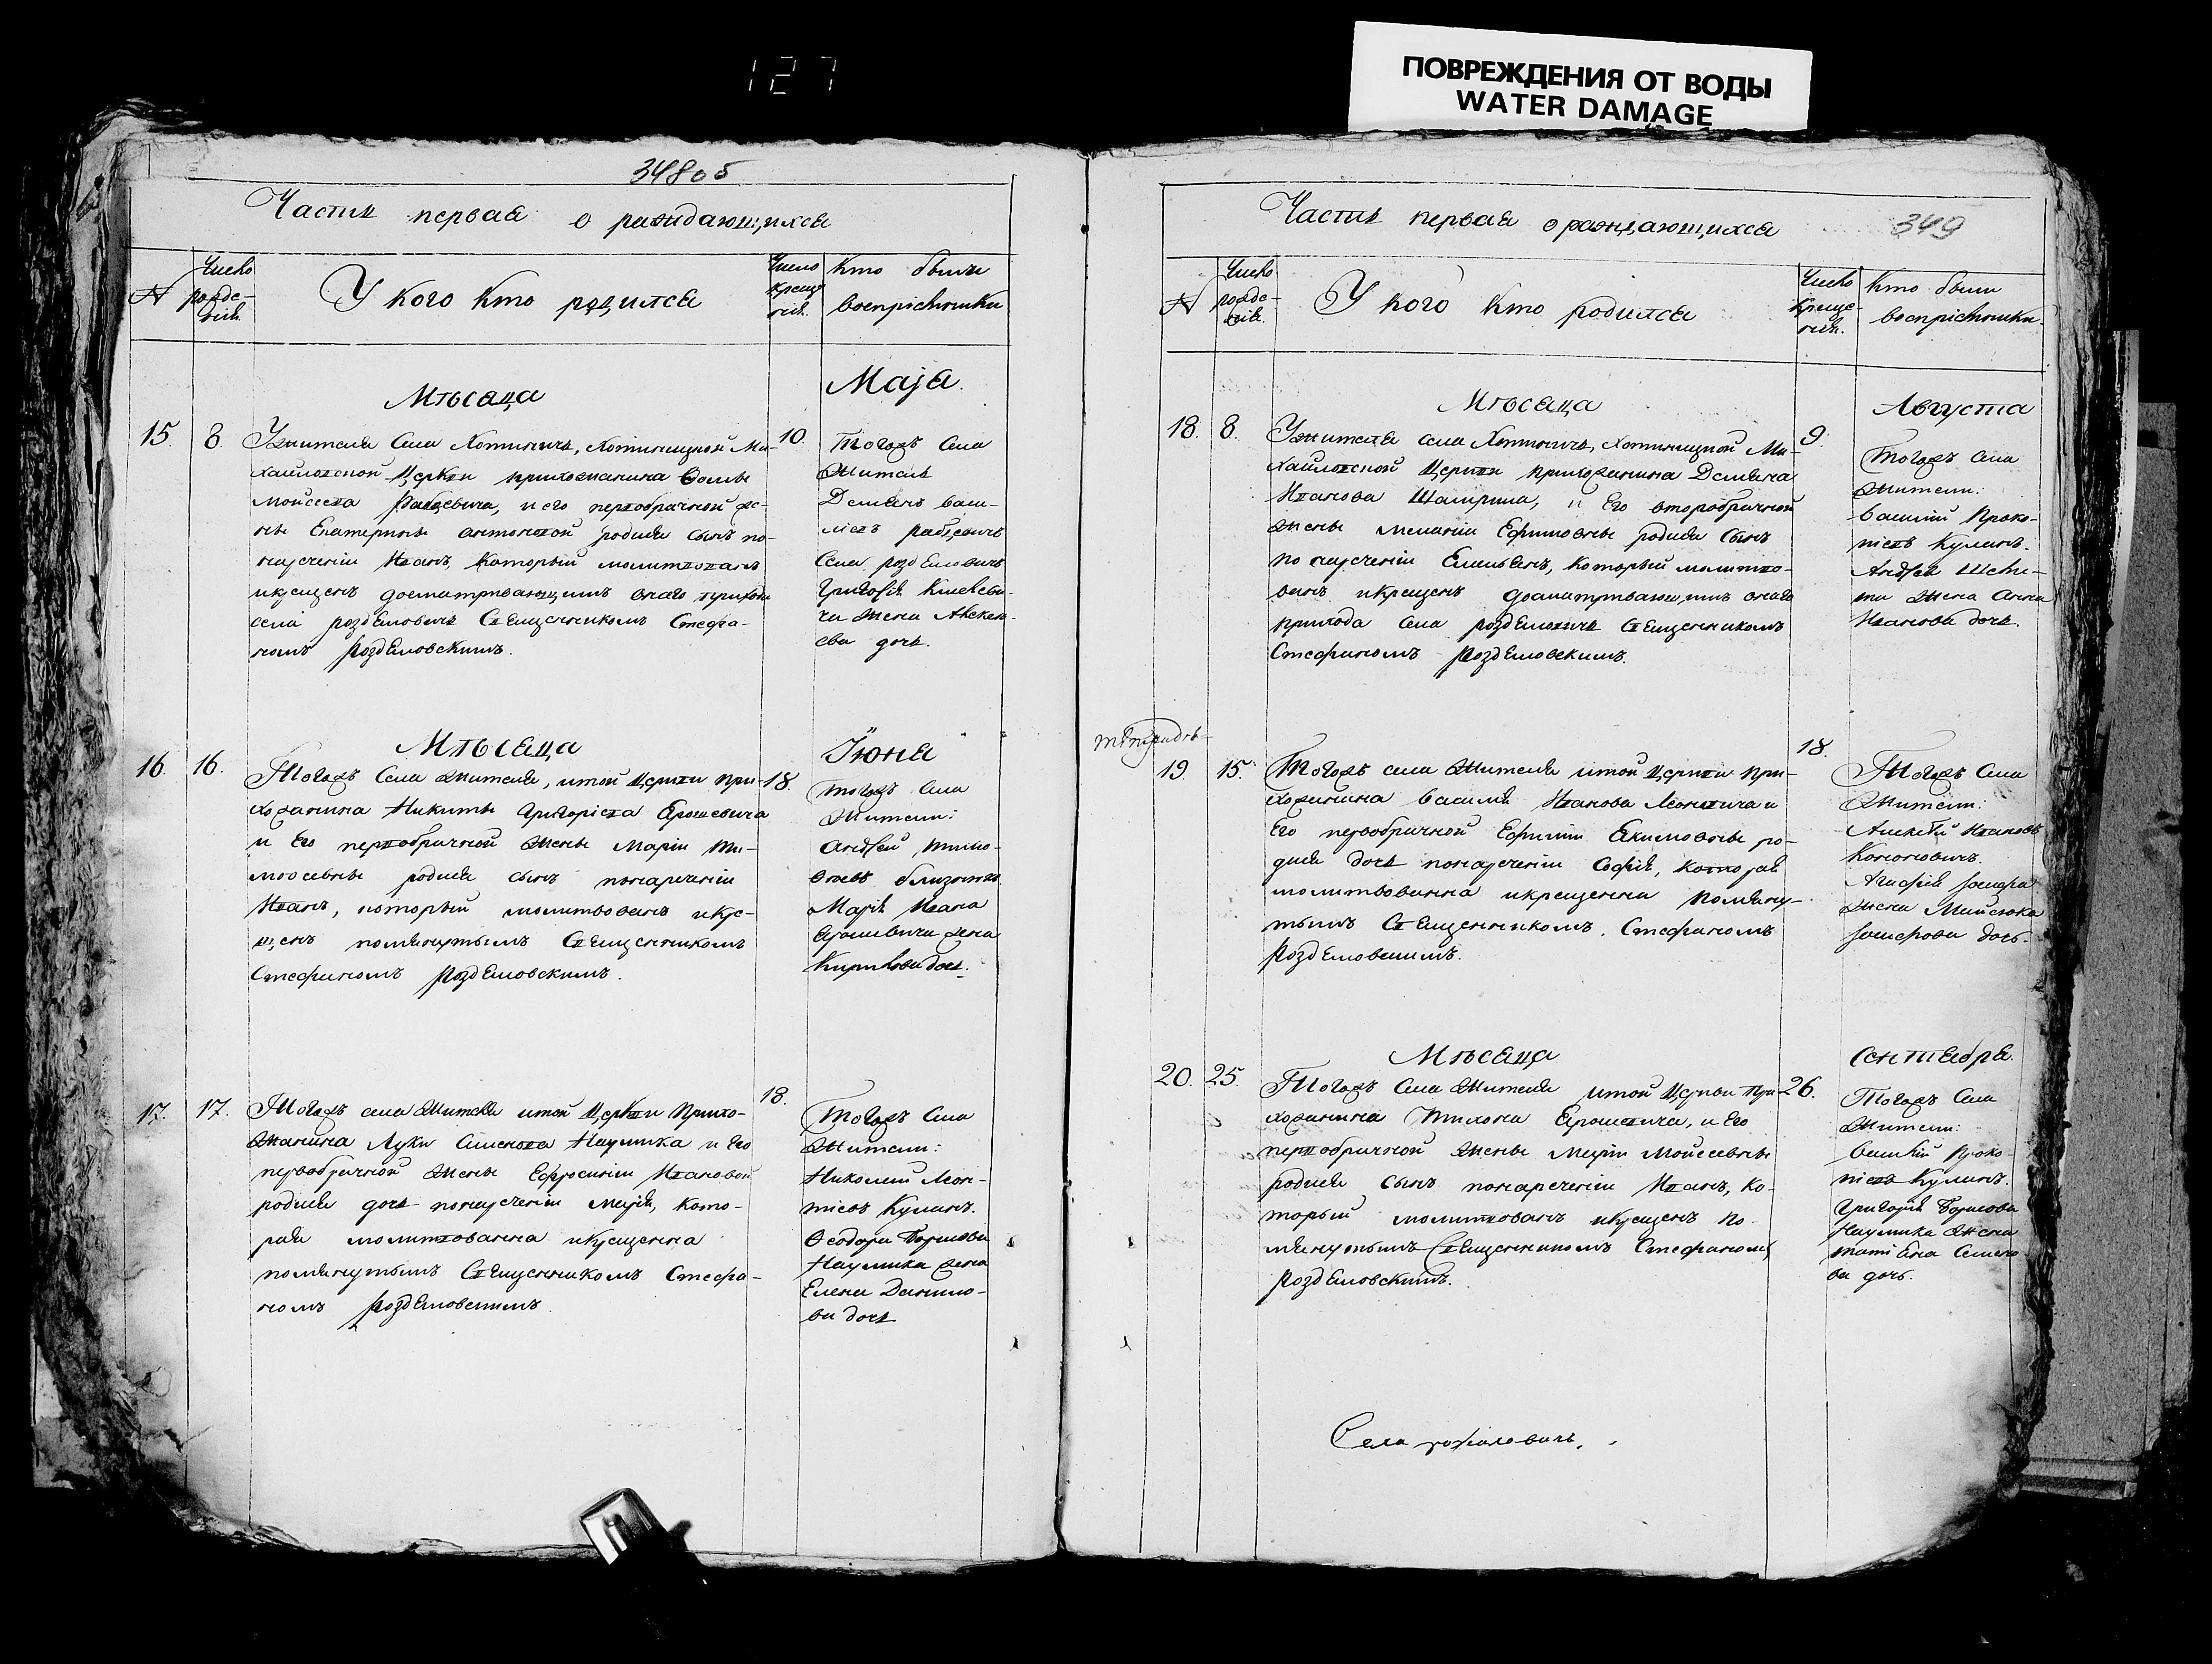 127
ПОВРЕЖДЕНИЯ ОТ ВОДЫ
WATER DAMAGE
348 об
Часть первая о раждающихся
№
Число рожде-нія
У кого кто родился
Число креще-нія
Кто были воспріемники
Мѣсяца Маія
15. 8.
Ужителя Села Хотиничъ, Хотиницкой Ми-
хайловской Церкви прихожанина Ѳомы
Мойсеева Рабцевича, и его первобрачной же-
ны Екатерины Антоновой родился Сынъ по-
нареченіи Иванъ, Который молитвованъ
икрещенъ досматривающимъ онаго прихода
села роздѣловичъ Священникомъ Стефа-
номъ Роздѣловскимъ.
10.
Тогожъ Села
Житель
Демянъ Васи-
ліевъ рабцевичъ
Села роздѣловичъ
Григорія
жена
ева дочь.
Мѣсяца Іюня
16. 16.
Тогожъ Села Жителя, итой Церкви при-
хожанина Никиты Григоріева Ерошевича
и Его первобрачной Жены Маріи Ти-
моѳеевны родился сынъ понареченіи
Иванъ, который молитвованъ икре-
щенъ помянутымъ Священникомъ
Стефаномъ Роздѣловскимъ.
18.
Тогожъ Села
Жители:
Андрей Тимо-
ѳеевъ
Марія Ивана
Ерошевича жена
Кирилова дочь.
17. 17.
Тогожъ села Жителя итой Церкви Прихо-
жанина Луки Семенова Наумика и Его
первобрачной Жены Ефросиніи Ивановой
родися дочь понареченіи Марія, кото-
рая молитвованна икрещенна
помянутымъ Священникомъ Стефа-
номъ Роздѣловскимъ.
18.
Тогожъ Села
Жители:
Николай Леон-
тіевъ Куланъ.
Ѳеодора Борисова
Наумика жена
Елена Данило-
ва дочь
Часть первая о раждающихся
349
№
Число рожде-нія
У кого кто родился
Число креще-нія
Кто были воспріемники
Мѣсяца Августа
18. 8.
Ужителя села Хотиничъ, Хотиницкой Ми-
хайловской Церкви прихожанина Демяна
Иванова Шатрина, и Его второбрачной
жены Меланіи Ефимовны родися Сынъ
по нареченіи Емельянъ, Который молитво-
ванъ икрещенъ досматривающимъ онаго
прихода Села роздѣловичъ Священникомъ
Стефаномъ Роздѣловскимъ.
9.
Тогожъ Села
Жители:
Василій Проко-
піевъ Куланъ.
Андрея
жена Анна
Иванова дочь.
19. 15.
Тогожъ села Жителя итой Церкви При-
хожанина Василія Иванова Леоновича и
Его первобрачной Ефиміи Екимовны ро-
дися дочь понареченіи Софія, которая
молитвованна икрещенна помяну-
тымъ Священникомъ Стефаномъ
Роздѣловскимъ.
18.
Тогожъ Села
Жители:
Алексѣй Ивановъ
Кононовичъ.
Агафія Іосифа
жена
Іосифова дочь.
Мѣсяца Сентября.
20. 25.
Тогожъ Села Жителя итой Церкви при-
хожанина Тихона Ерошевича, и Его
первобрачной Жены Маріи Мойсеевны
родися Сынъ понареченіи Иванъ, ко-
торый молитвованъ икрещенъ по-
мянутымъ Священникомъ Стефаномъ
Роздѣловскимъ.
26.
Тогожъ Села
Жители:
Василій Проко-
піевъ Куланъ.
Григорія Борисова
Наумика Жена
Татіана Семено
ва дочь.
Села